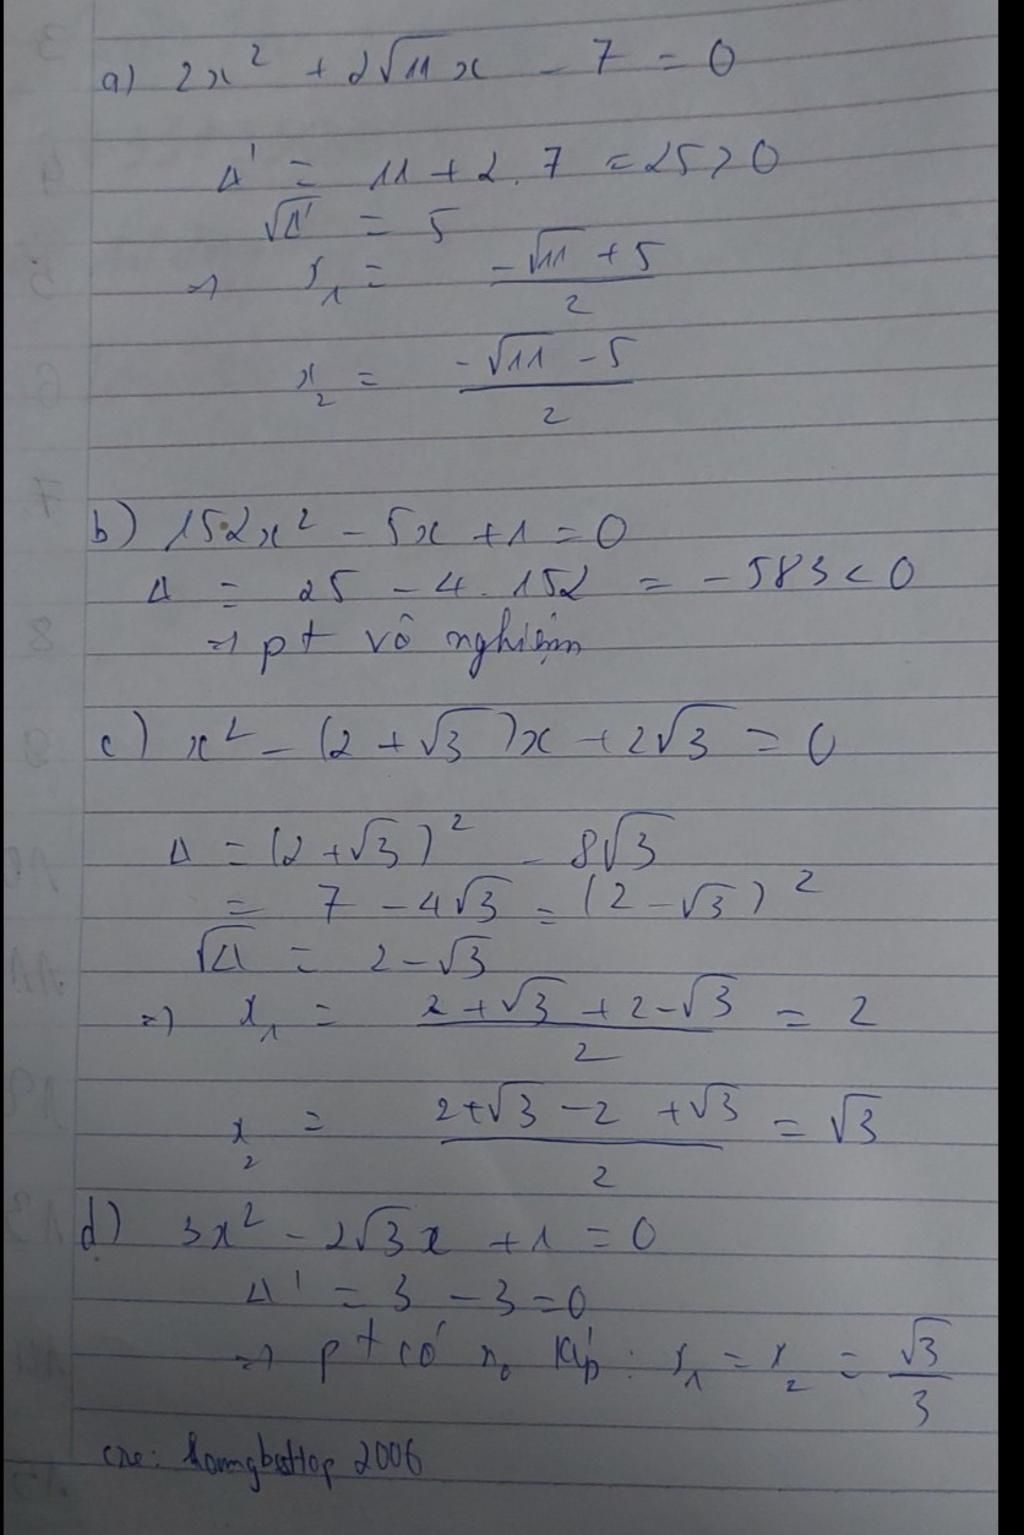 a) 2x² + 2√11 x - 7 = 0
Δ' = 11 + 2.7 = 25 > 0
√Δ' = 5
=> x₁ = (-√11 + 5)/2
x₂ = (-√11 - 5)/2
b) 152x² - 5x + 1 = 0
Δ = 25 - 4.152 = -583 < 0
=> pt vô nghiệm
c) x² - (2 + √3)x + 2√3 = 0
Δ = (2 + √3)² - 8√3
= 7 - 4√3 = (2 - √3)²
√Δ = 2 - √3
=> x₁ = (2 + √3 + 2 - √3)/2 = 2
x₂ = (2 + √3 - 2 + √3)/2 = √3
d) 3x² - 2√3 x + 1 = 0
Δ' = 3 - 3 = 0
=> pt có n₀ kép : x₁ = x₂ = √3/3
cre: 2006